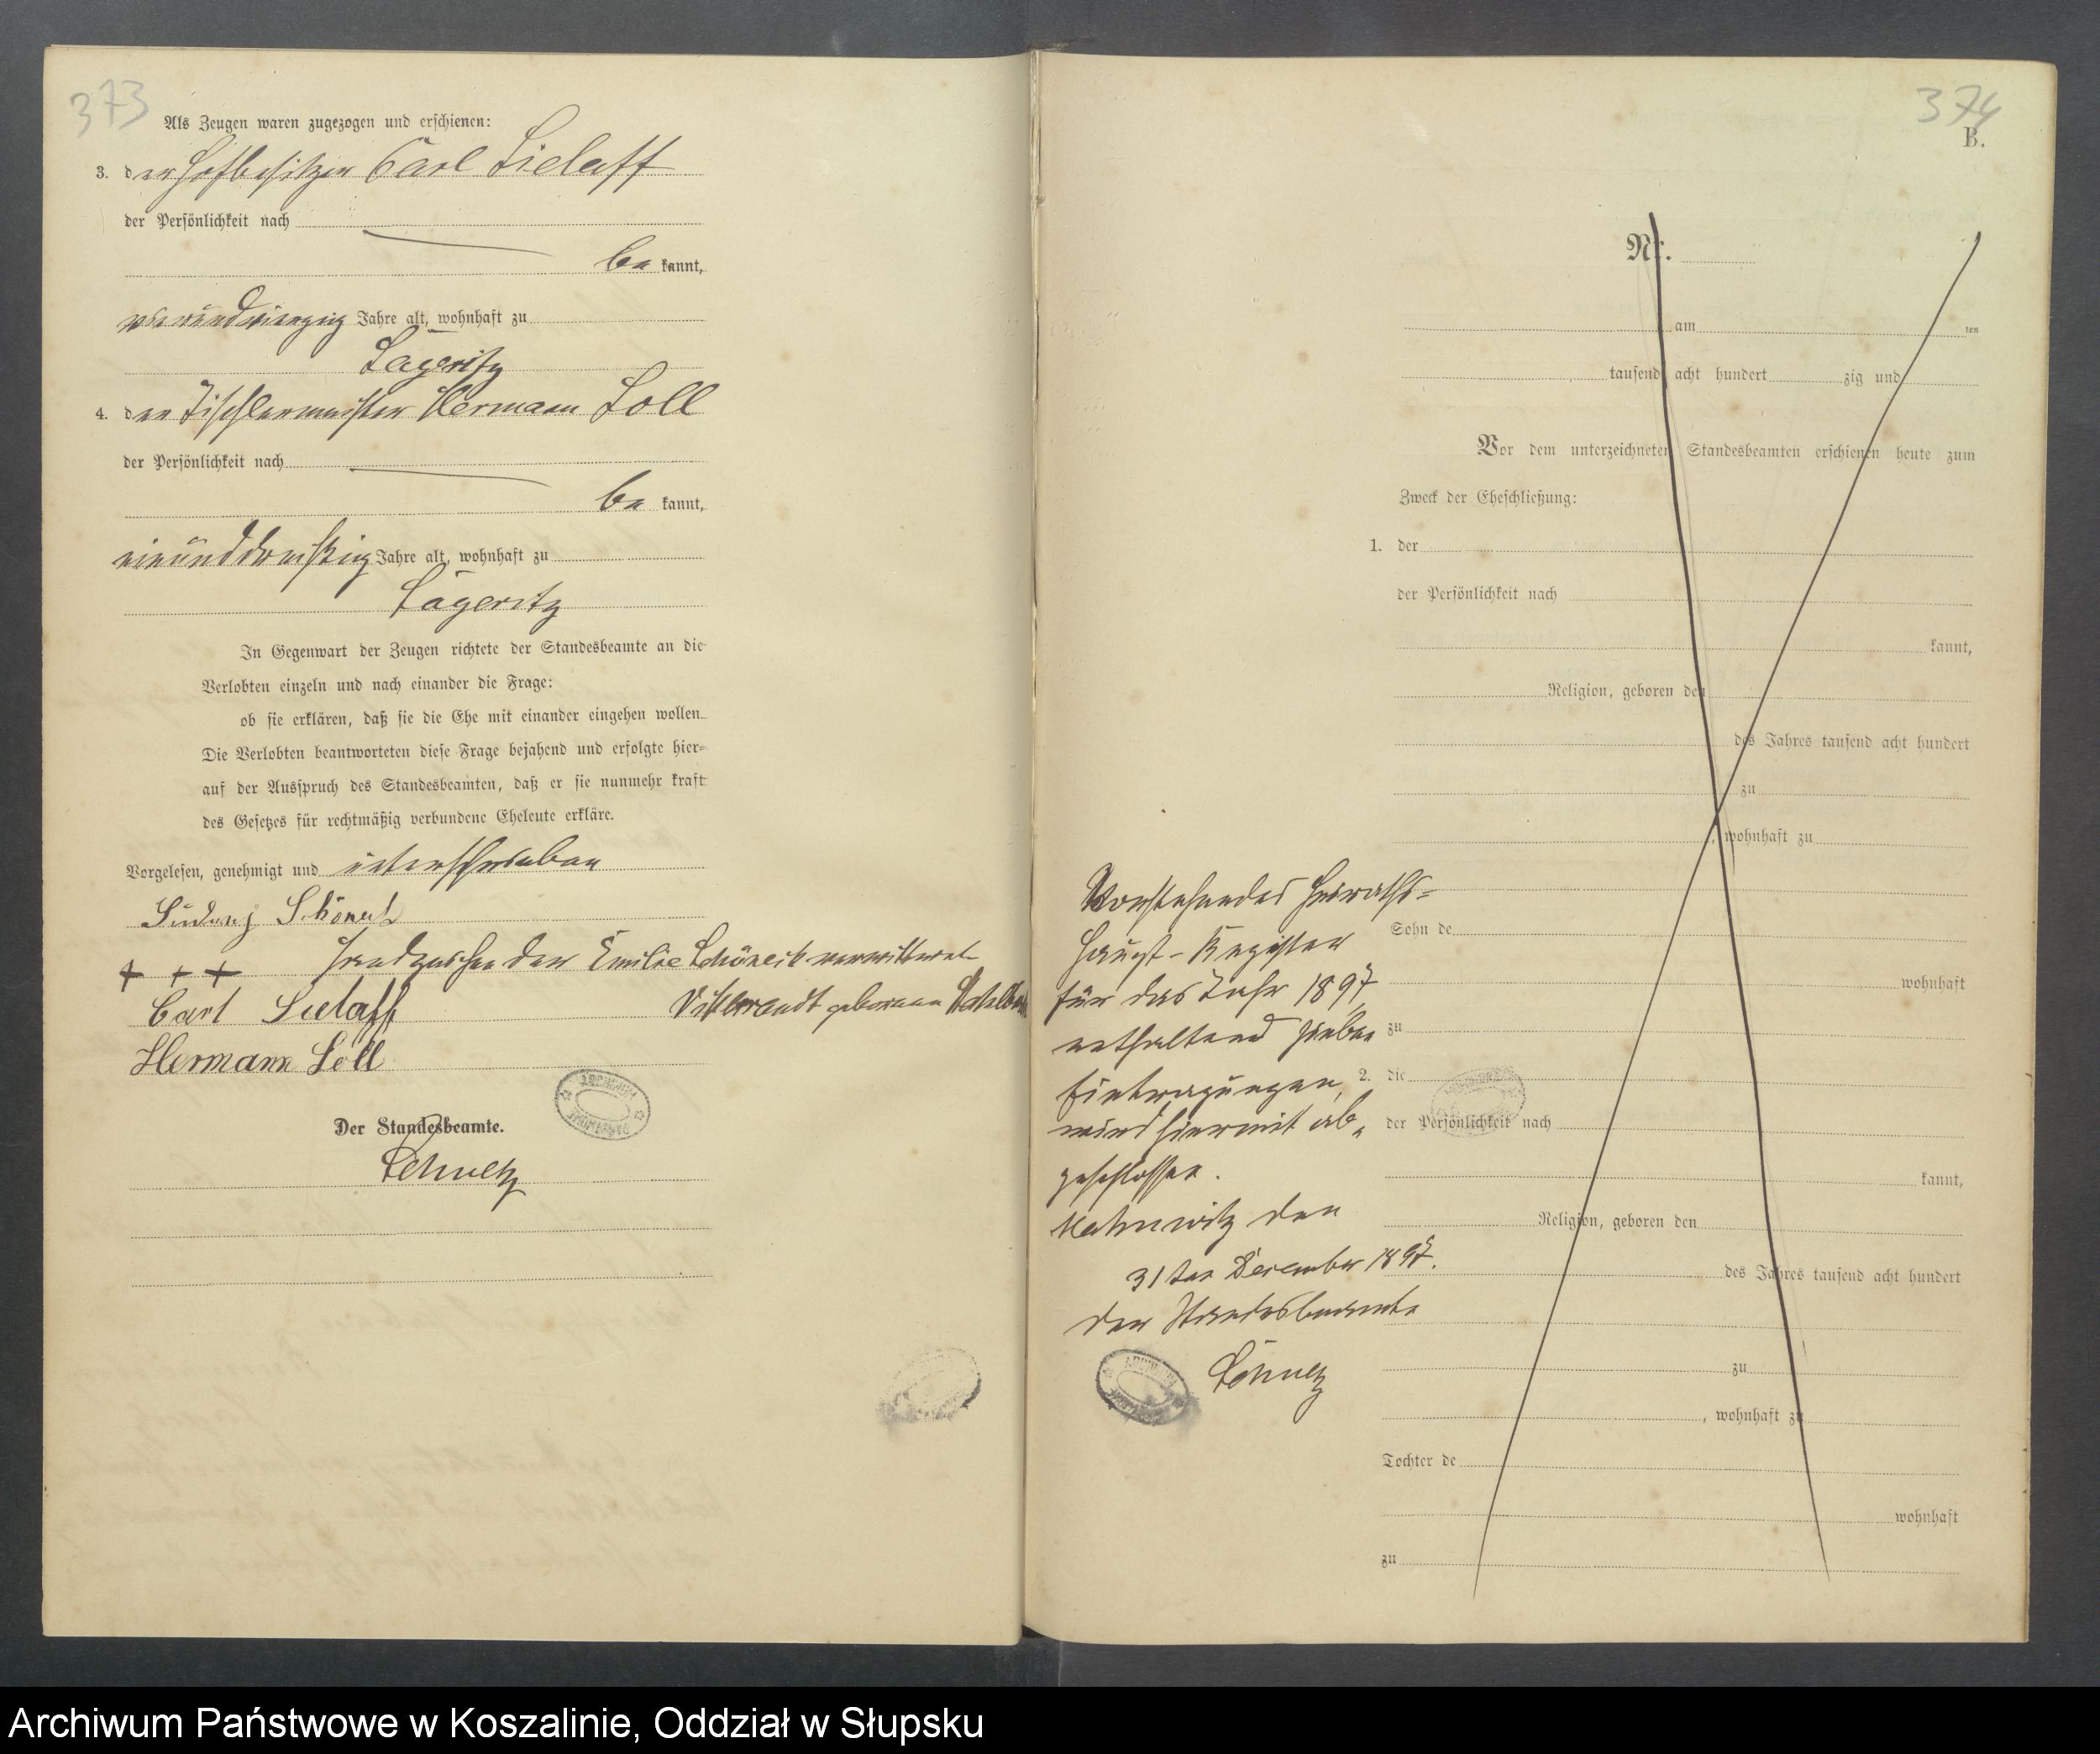 373
Als Zeugen waren zugezogen und erschienen:
3. der Hofbesitzer Carl Sielaff
der Persönlichkeit nach
be kannt,
Jahre alt, wohnhaft zu
Zageritz
4. der Tischlermeister Hermann Soll
der Persönlichkeit nach
be kannt,
einunddreißig Jahre alt, wohnhaft zu
Zageritz
In Gegenwart der Zeugen richtete der Standesbeamte an die
Verlobten einzeln und nach einander die Frage:
ob sie erklären, daß sie die Ehe mit einander eingehen wollen.
Die Verlobten beantworteten diese Frage bejahend und erfolgte hier-
auf der Ausspruch des Standesbeamten, daß er sie nunmehr kraft
des Gesetzes für rechtmäßig verbundene Eheleute erkläre.
Vorgelesen, genehmigt und unterschrieben
Ludwig
+ + + Handzeichen der Emilie verwittwet
geborene
Carl Sielaff
Hermann Soll
Der Standesbeamte.
374
B.
Nr.
am ten
tausend acht hundert zig und
Vor dem unterzeichneten Standesbeamten erschienen heute zum
Zweck der Eheschließung:
1. der
der Persönlichkeit nach
kannt,
Religion, geboren den
des Jahres tausend acht hundert
zu
, wohnhaft zu
Sohn de
wohnhaft
zu
2. die
der Persönlichkeit nach
kannt,
Religion, geboren den
des Jahres tausend acht hundert
zu
, wohnhaft zu
Tochter de
wohnhaft
zu
Vorstehendes Heiraths-
Haupt-Register
für das Jahr 1897,
enthaltend sieben
Eintragungen,
wird hiermit ab-
geschlossen.
den
31ten December 1897.
Der Standesbeamte
Archiwum Państwowe w Koszalinie, Oddział w Słupsku